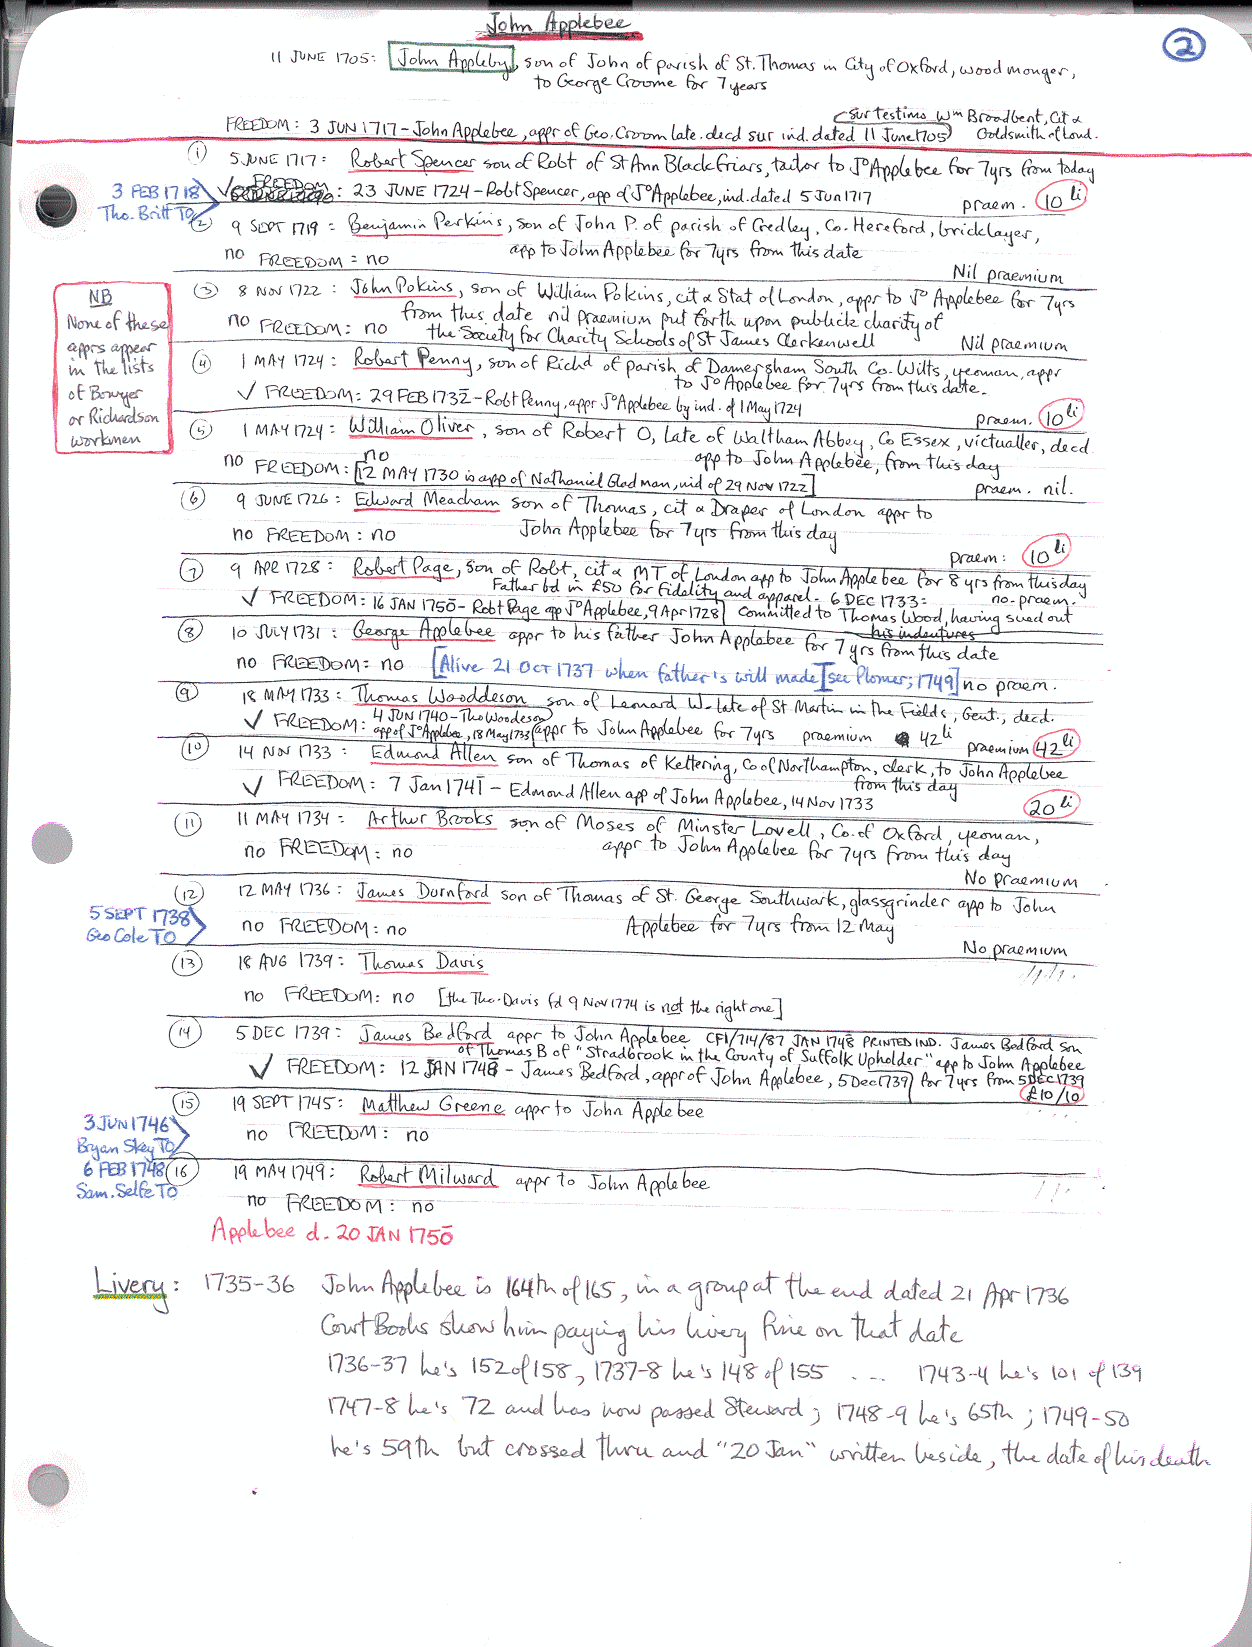 John Applebee
2
11 JUNE 1705: John Appleby, son of John of parish of St. Thomas in City of Oxford, woodmonger,
to George Croome for 7 years
Sur testimo Wm Broadbent, Cit &
FREEDOM: 3 JUN 1717 - John Applebee, appr of Geo. Croom late decd sur ind. dated 11 June 1705 Goldsmith of Lond.
1 5 JUNE 1717: Robert Spencer son of Robt of St Ann Blackfriars, tailor to Jo Applebee for 7yrs from today
3 FEB 1718
Tho. Britt TO
✓ FREEDOM: 23 JUNE 1724 - Robt Spencer, app of Jo Applebee, ind. dated 5 Jun 1717 praem. 10 li
2 9 SEPT 1719: Benjamin Perkins, son of John P. of parish of Credley, Co. Hereford, bricklayer,
app to John Applebee for 7yrs from this date
no FREEDOM = no
Nil praemium
NB
None of these
apprs appear
in the lists
of Bowyer
or Richardson
workmen
3 8 NOV 1722: John Pokins, son of William Pokins, cit & Stat of London, appr to Jo Applebee for 7yrs
from this date nil praemium put forth upon publick charity of
no FREEDOM: no the Society for Charity Schools of St James Clerkenwell Nil praemium
4 1 MAY 1724: Robert Penny, son of Richd of parish of Damersham South Co. Wilts, yeoman, appr
to Jo Applebee for 7yrs from this date.
✓ FREEDOM: 29 FEB 1732 - Robt Penny, appr Jo Applebee by ind. of 1 May 1724 praem. 10 li
5 1 MAY 1724: William Oliver, son of Robert O, late of Waltham Abbey, Co Essex, victualler, decd
app to John Applebee, from this day
no FREEDOM: no [12 MAY 1730 is app of Nathaniel Glodman, ind of 29 Nov 1722] praem. nil.
6 9 JUNE 1726: Edward Meacham son of Thomas, cit & Draper of London appr to
John Applebee for 7yrs from this day
no FREEDOM: no
praem: 10 li
7 9 APR 1728: Robert Page, son of Robt, cit & MT of London app to John Applebee for 8 yrs from this day
Father bd in £50 for fidelity and apparel - 6 DEC 1733: no praem.
✓ FREEDOM: 16 JAN 1750 - Robt Page app Jo Applebee, 9 Apr 1728 committed to Thomas Wood, having sued out
his indentures
8 10 JULY 1731: George Applebee appr to his father John Applebee for 7 yrs from this date
no FREEDOM: no [Alive 21 OCT 1737 when father's will made] [see Plomer; 1749] no praem.
9 18 MAY 1733: Thomas Wooddeson son of Leonard W. late of St Martin in the Fields, Gent., decd.
✓ FREEDOM: 4 JUN 1740 - Tho Woodeson
app of Jo Applebee, 18 May 1733 appr to John Applebee for 7yrs praemium 42 li praemium 42 li
10 14 NOV 1733: Edmond Allen son of Thomas of Kettering, Co of Northampton, clerk, to John Applebee
from this day
✓ FREEDOM: 7 Jan 1741 - Edmond Allen app of John Applebee, 14 Nov 1733 20 li
11 11 MAY 1734: Arthur Brooks son of Moses of Minster Lovell, Co. of Oxford, yeoman,
appr to John Applebee for 7yrs from this day
no FREEDOM: no
No praemium
12 12 MAY 1736: James Durnford son of Thomas of St. George Southwark, glassgrinder app to John
5 SEPT 1738
Geo Cole TO
no FREEDOM: no Applebee for 7yrs from 12 May
No praemium
13 18 AUG 1739: Thomas Davis
no FREEDOM: no [the Tho. Davis fd 9 Nov 1774 is not the right one]
14 5 DEC 1739: James Bedford appr to John Applebee CF1/714/87 JAN 1748 PRINTED IND. James Bedford son
of Thomas B of "Stradbrook in the County of Suffolk Upholder" app to John Applebee
✓ FREEDOM: 12 JAN 1748 - James Bedford, appr of John Applebee, 5 Dec 1739 for 7 yrs from 5 DEC 1739
£10/10
15 19 SEPT 1745: Matthew Greene appr to John Applebee
no FREEDOM: no
3 JUN 1746
Bryan Skey TO
6 FEB 1748
Sam. Selfe TO
16 19 MAY 1749: Robert Milward appr to John Applebee
no FREEDOM: no
Applebee d. 20 JAN 1750
Livery: 1735-36 John Applebee is 164th of 165, in a group at the end dated 21 Apr 1736
Court Books show him paying his livery fine on that date
1736-37 he's 152 of 158, 1737-8 he's 148 of 155 ... 1743-4 he's 101 of 139
1747-8 he's 72 and has now passed Steward; 1748-9 he's 65th; 1749-50
he's 59th but crossed thru and "20 Jan" written beside, the date of his death